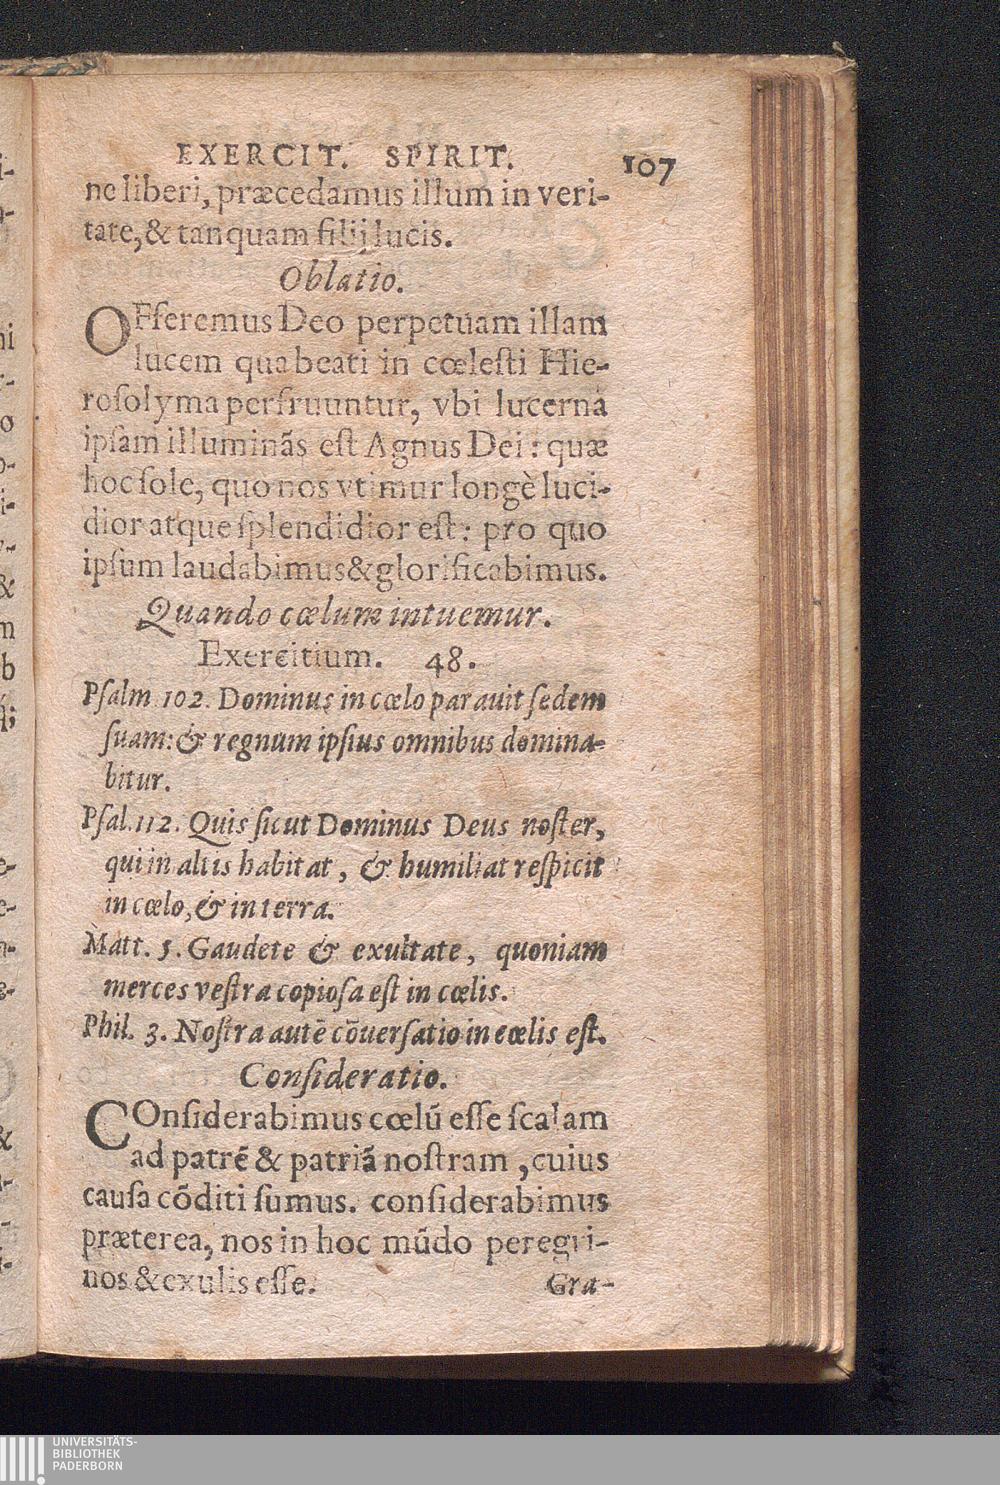 EXERCIT. SPIRIT. 107
ne liberi, præcedamus illum in veri-
tate, & tanquam filij lucis.
Oblatio.
OFferemus Deo perpetuam illam
lucem qua beati in cœleſti Hie-
roſolyma perfruuntur, vbi lucerna
ipſam illuminãs eſt Agnus Dei: quæ
hoc ſole, quo nos vtimur longè luci-
dior atque ſplendidior eſt: pro quo
ipſum laudabimus & glorificabimus.
Quando cœlum intuemur.
Exercitium. 48.
Pſalm 102. Dominus in cœlo parauit ſedem
ſuam: & regnum ipſius omnibus domina-
bitur.
Pſal. 112. Quis ſicut Dominus Deus noſter,
qui in altis habitat, & humiliat reſpicit
in cœlo, & in terra.
Matt. 5. Gaudete & exultate, quoniam
merces veſtra copioſa eſt in cœlis.
Phil. 3. Noſtra autē cōuerſatio in cœlis eſt.
Conſideratio.
COnſiderabimus cœlū eſſe ſcalam
ad patrē & patriã noſtram, cuius
cauſa cōditi ſumus. conſiderabimus
præterea, nos in hoc mūdo peregri-
nos & exulis eſſe. Gra-
UNIVERSITÄTS-
BIBLIOTHEK
PADERBORN